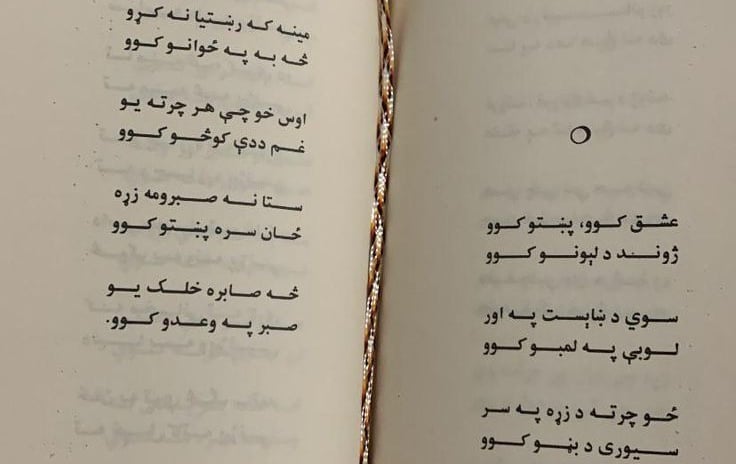 عشق کوو، پښتو کوو
ژوند د لېونو کوو
سوي د ښايست په اور
لوبې په لمبو کوو
ځو چرته د زړه په سر
سيورى د بڼو کوو
مينه که رښتيا نه کړو
څه به په ځوانو کوو
اوس خو چې هر چرته يو
غم ددې کوڅو کوو
ستا نه صبرومه زړه
ځان سره پښتو کوو
څه صابره خلک يو
صبر په وعدو کوو.